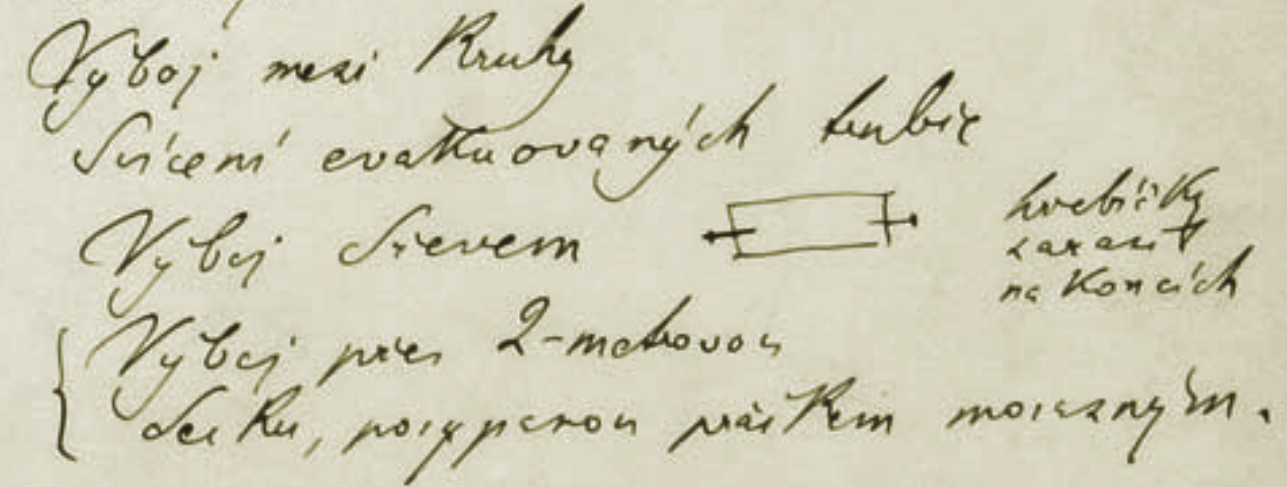 Výboj mezi Kruhy
Svícení evakuovaných trubic
Výboj dřevem
hřebíčky
zarazit
na Koncích
Výboj přes 2-metrovou
desku, posypanou práškem mosazným.